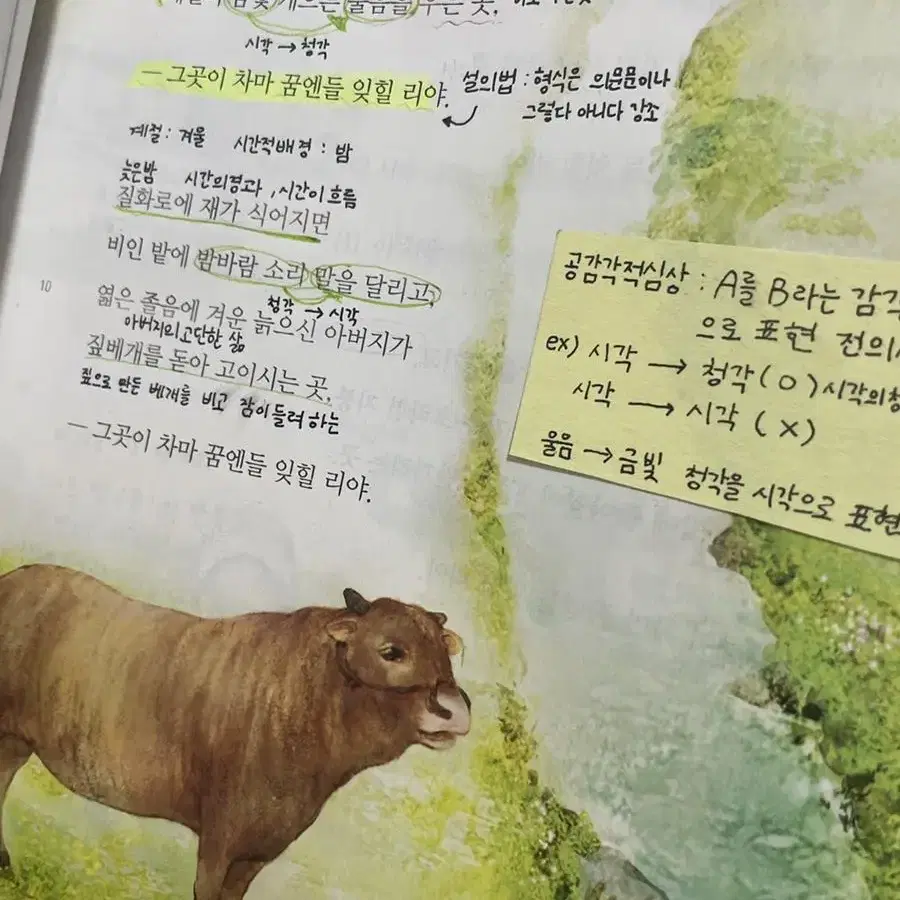 게으른 울음을 우는 곳,
시각 → 청각
— 그곳이 차마 꿈엔들 잊힐 리야.
설의법 : 형식은 의문문이나
그렇다 아니다 강조
계절 : 겨울 시간적배경 : 밤
늦은밤 시간의경과 , 시간이 흐름
질화로에 재가 식어지면
비인 밭에 밤바람 소리 말을 달리고,
청각 → 시각
10
엷은 졸음에 겨운 늙으신 아버지가
아버지의 고단한 삶
짚베개를 돋아 고이시는 곳,
짚으로 만든 베개를 비고 잠이 들려 하는
— 그곳이 차마 꿈엔들 잊힐 리야.
공감각적심상 : A를 B라는 감각
으로 표현 전의
ex) 시각 → 청각 ( O ) 시각의
시각 → 시각 ( X )
울음 → 금빛 청각을 시각으로 표현